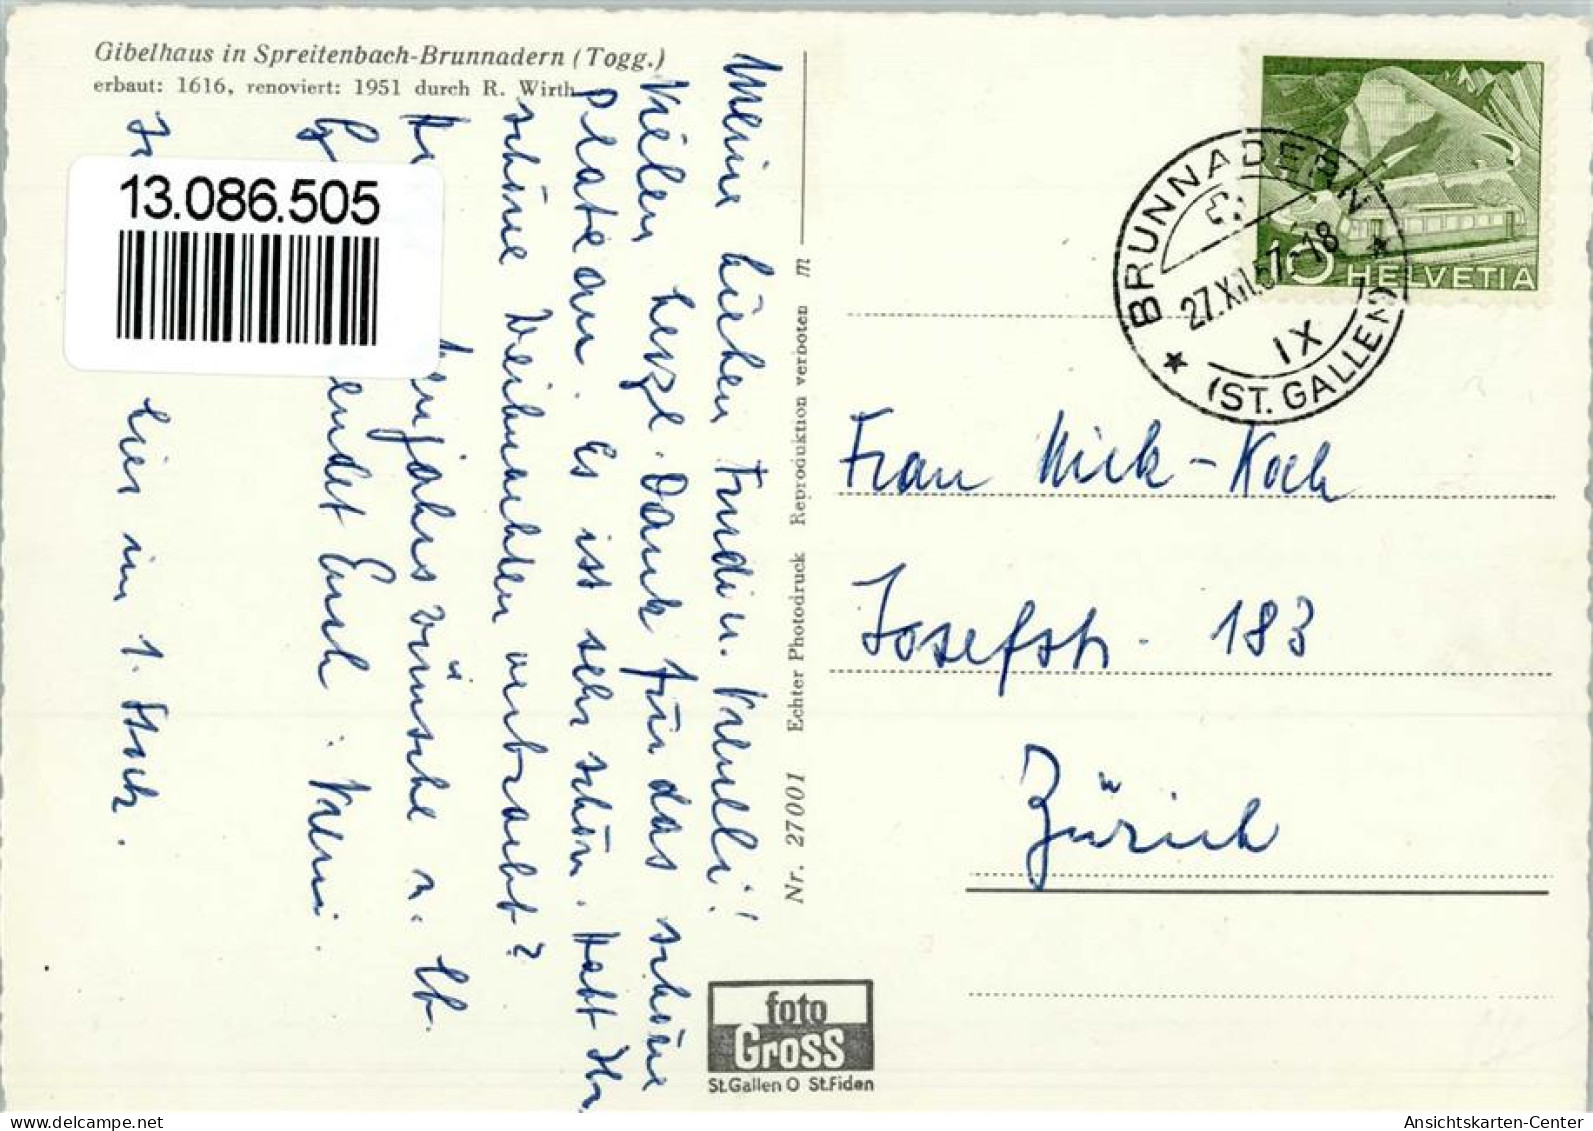 Gibelhaus in Spreitenbach-Brunnadern (Togg.)
erbaut: 1616, renoviert: 1951 durch R. Wirth
13.086.505
Meine lieben Freudin. Vreneli!
Vielen herzl. Dank für das schöne
Plateau. Es ist sehr schön. Habt Ihr
schöne Weihnachten verbracht?
Neujahrswünsche u. lb.
sendet Euch: Vreni.
hier im 1. Stock.
Nr. 27001 Echter Photodruck Reproduktion verboten m
foto
Gross
St.Gallen O St.Fiden
HELVETIA
10
BRUNNADERN
27.XII.57.-18
IX
(ST. GALLEN)
Frau Mick-Koch
Josefstr. 183
Zürich
Ansichtskarten-Center